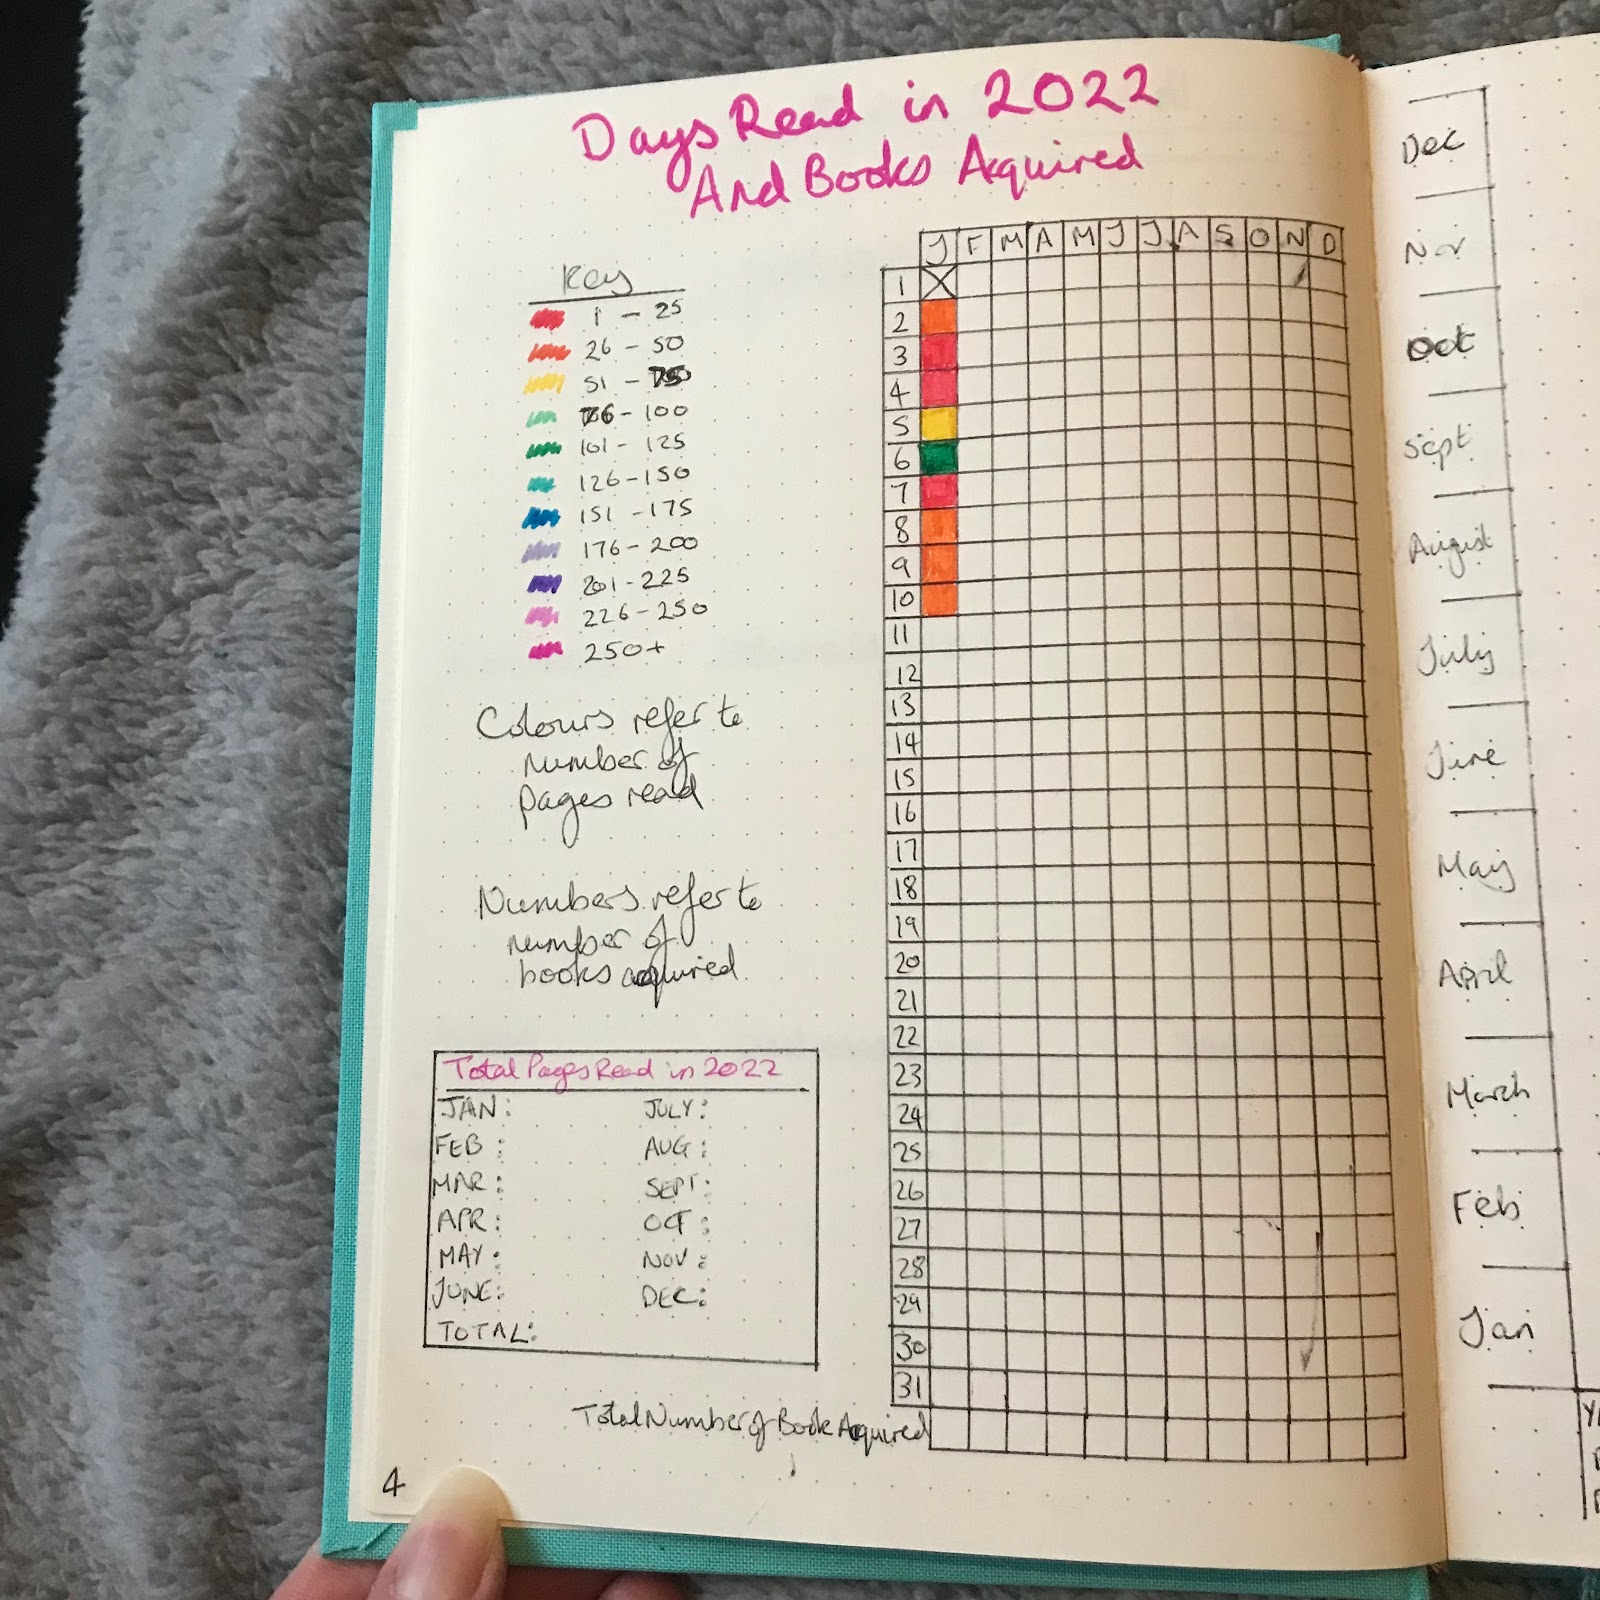 Days Read in 2022
And Books Acquired
Key
1 - 25
26 - 50
51 - 75
76 - 100
101 - 125
126 - 150
151 - 175
176 - 200
201 - 225
226 - 250
250+
Colours refer to
number of
pages read
Numbers refer to
number of
books acquired
Total Pages Read in 2022
JAN: JULY:
FEB : AUG :
MAR : SEPT:
APR : OCT :
MAY : NOV :
JUNE: DEC:
TOTAL:
J F M A M J J A S O N D
1 X
2
3
4
5
6
7
8
9
10
11
12
13
14
15
16
17
18
19
20
21
22
23
24
25
26
27
28
29
30
31
Total Number of Book Acquired
4
Dec
Nov
Oct
Sept
August
July
June
May
April
March
Feb
Jan